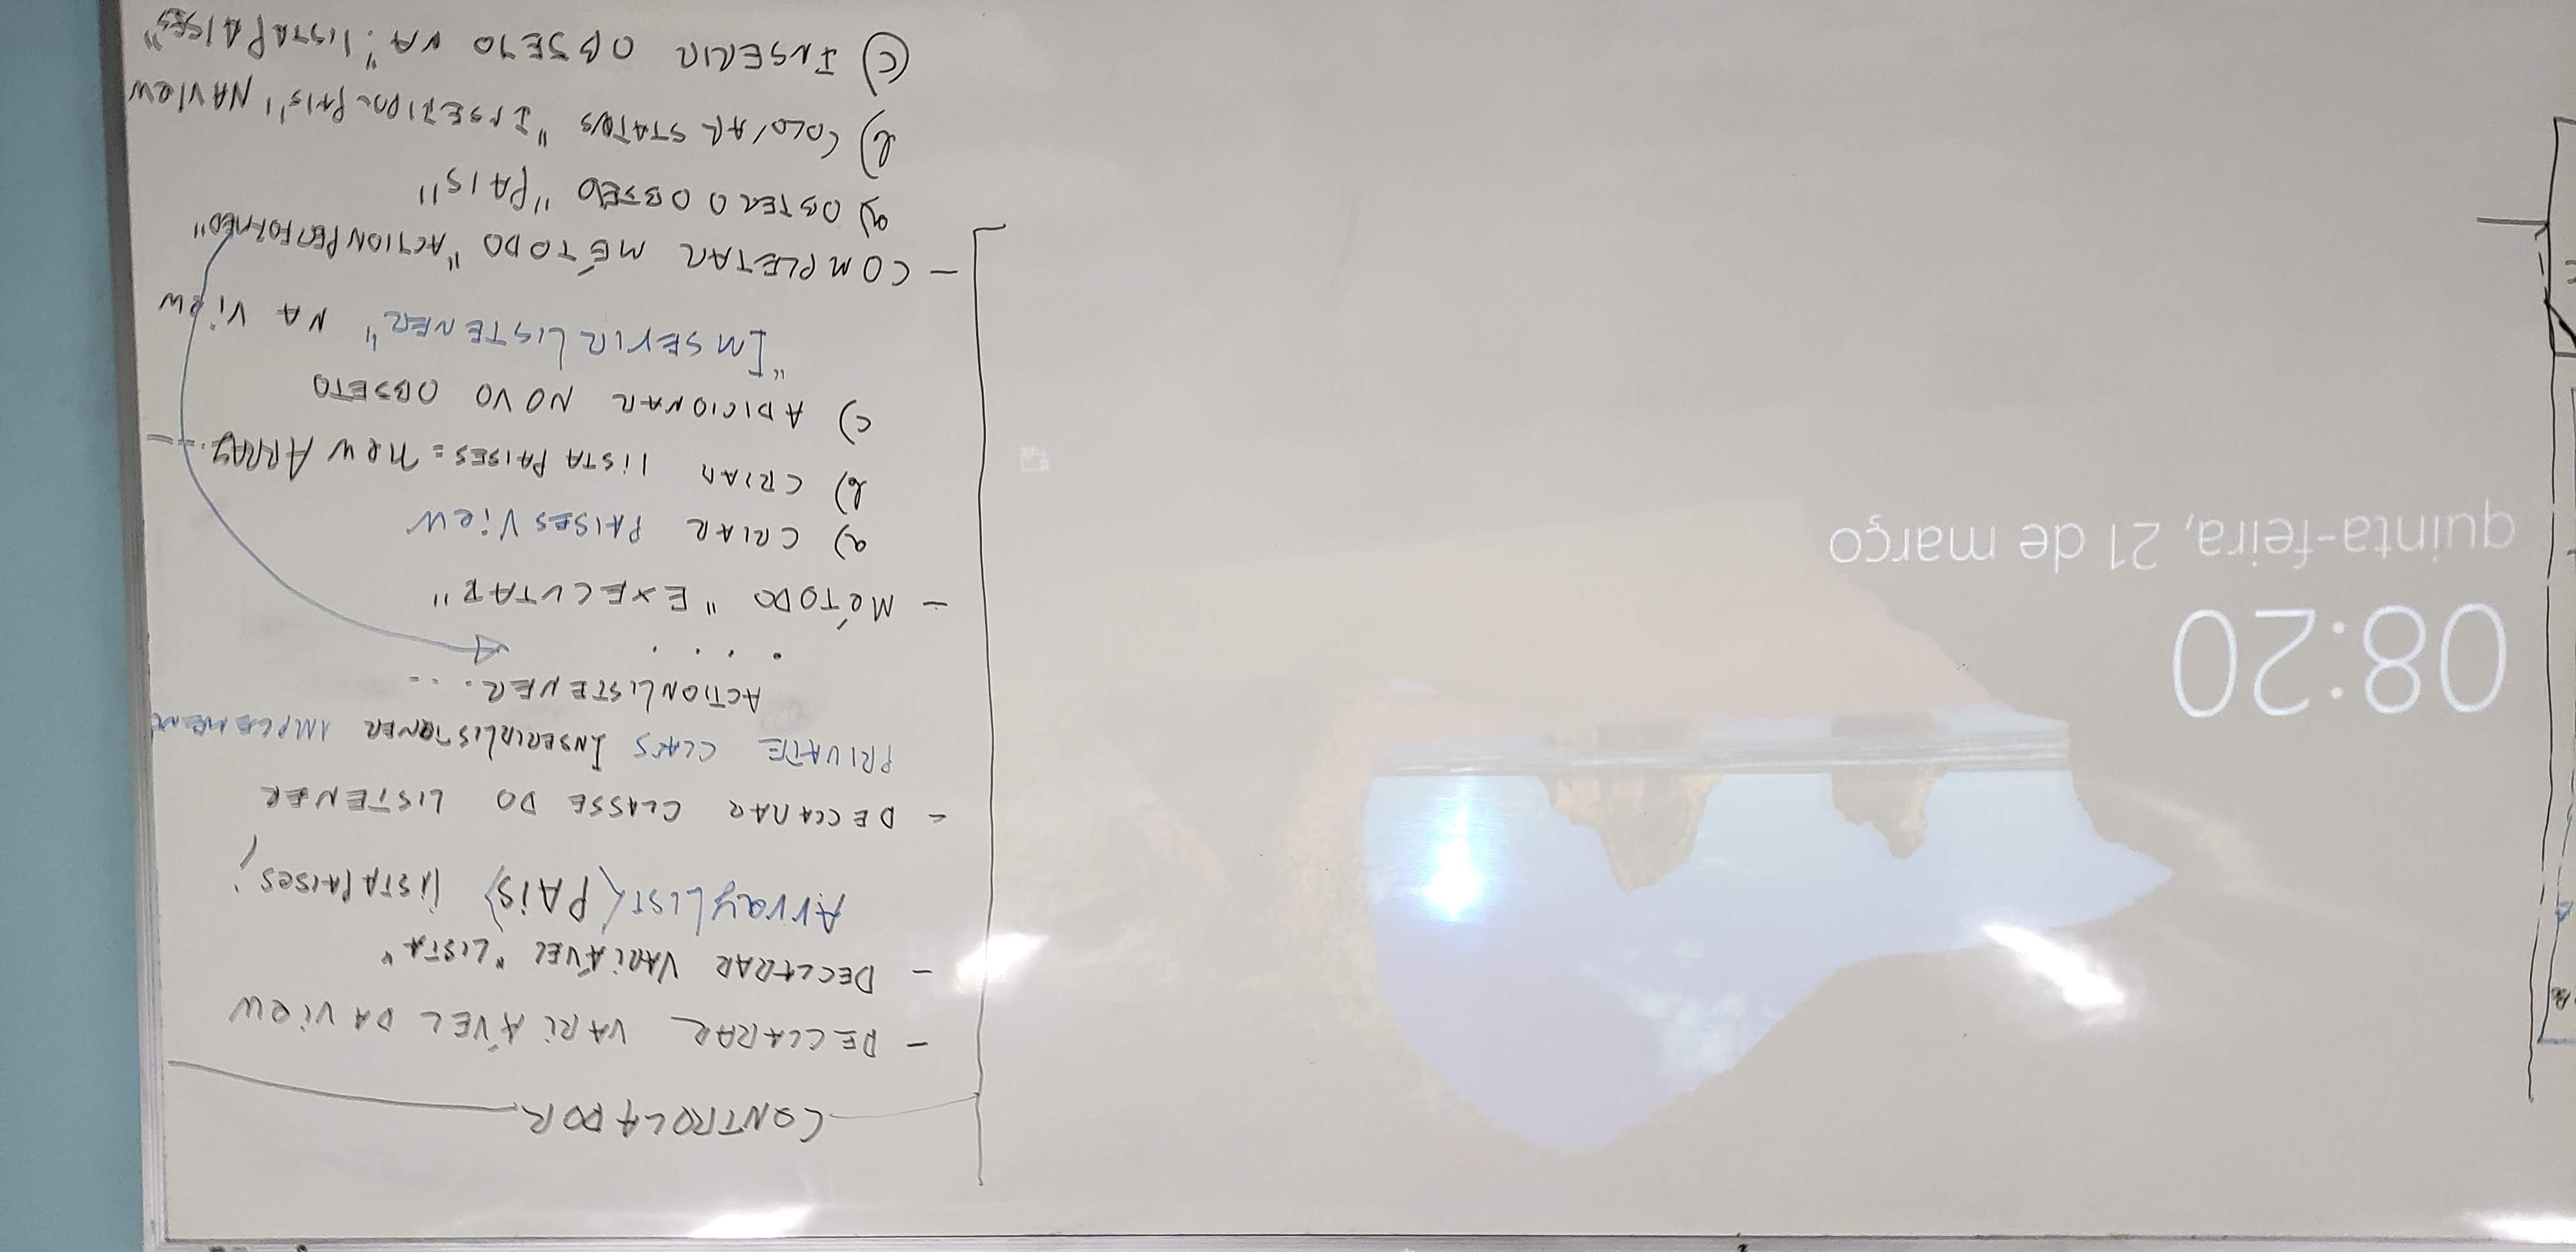 08:20
quinta-feira, 21 de março
CONTROLADOR
- DECLARAR VARIÁVEL DA VIEW
- DECLARAR VARIÁVEL "LISTA"
ArrayList<PAIS> listaPaises;
- DECLARAR CLASSE DO LISTENER
PRIVATE CLASS INSERIRLISTENER IMPLEMENT
ACTIONLISTENER...
....
- MÉTODO "EXECUTAR"
a) CRIAR PAISESVIEW
b) CRIAR LISTAPAISES = new ARRAY...
c) ADICIONAR NOVO OBJETO
"INSERIRLISTENER" NA VIEW
- COMPLETAR MÉTODO "ACTIONPERFORMED"
a) OBTER O OBJETO "PAIS"
b) COLOCAR STATUS NA VIEW
c) INSERIR OBJETO NA "LISTAPAISES"